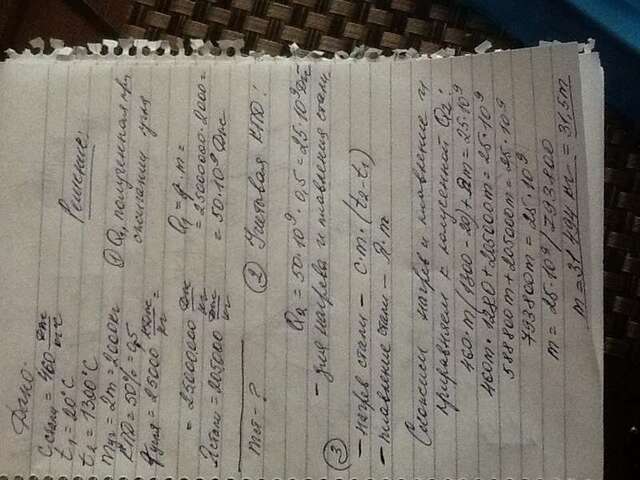 Дано:
c стали = 460 Дж/кг
t₁ = 20°C
t₂ = 1300°C
m уг = 2т = 2000кг
КПД = 50% = 0,5
q угля = 25000 кДж/кг
= 25000000 Дж/кг
λ стали = 205000 Дж/кг
m ст - ?
Решение:
① Q₁, полученная при
сжигании угля
Q₁ = q · m =
= 25000000 · 2000 =
= 50 · 10⁹ Дж
② Учитывая КПД:
Q₂ = 50 · 10⁹ · 0,5 = 25 · 10⁹ Дж
- для нагрева и плавления стали.
③ - нагрев стали - c · m · (t₂ - t₁)
- плавление стали - λ · m
Сложим нагрев и плавление и
приравняем к полученной Q₂:
460 · m (1300 - 20) + λm = 25 · 10⁹
460m · 1280 + 205000m = 25 · 10⁹
588800m + 205000m = 25 · 10⁹
793800m = 25 · 10⁹
m = 25 · 10⁹ / 793800
m = 31494 кг = 31,5т